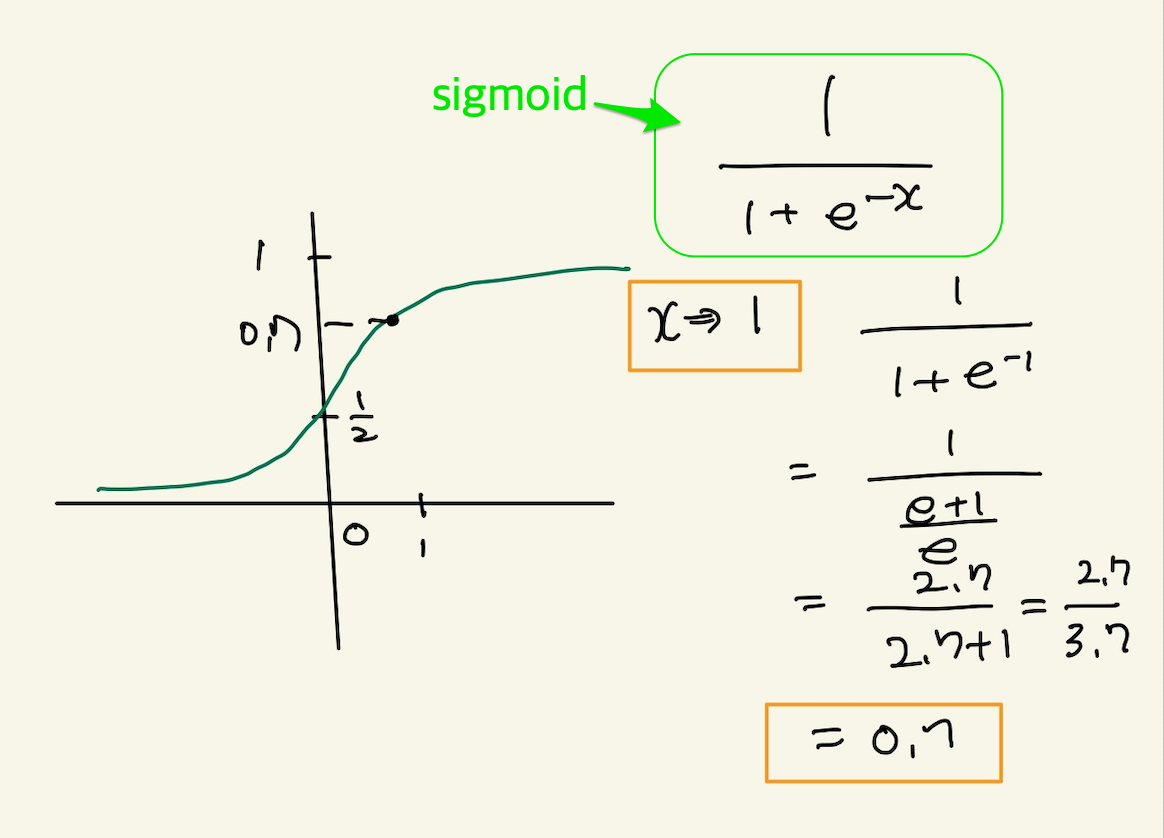 sigmoid
1
1 + e^-x
1
0,7
1/2
0
1
x ⇒ 1
1
1 + e^-1
= 1
e+1
e
= 2.7 = 2.7
2.7+1 3.7
= 0,7